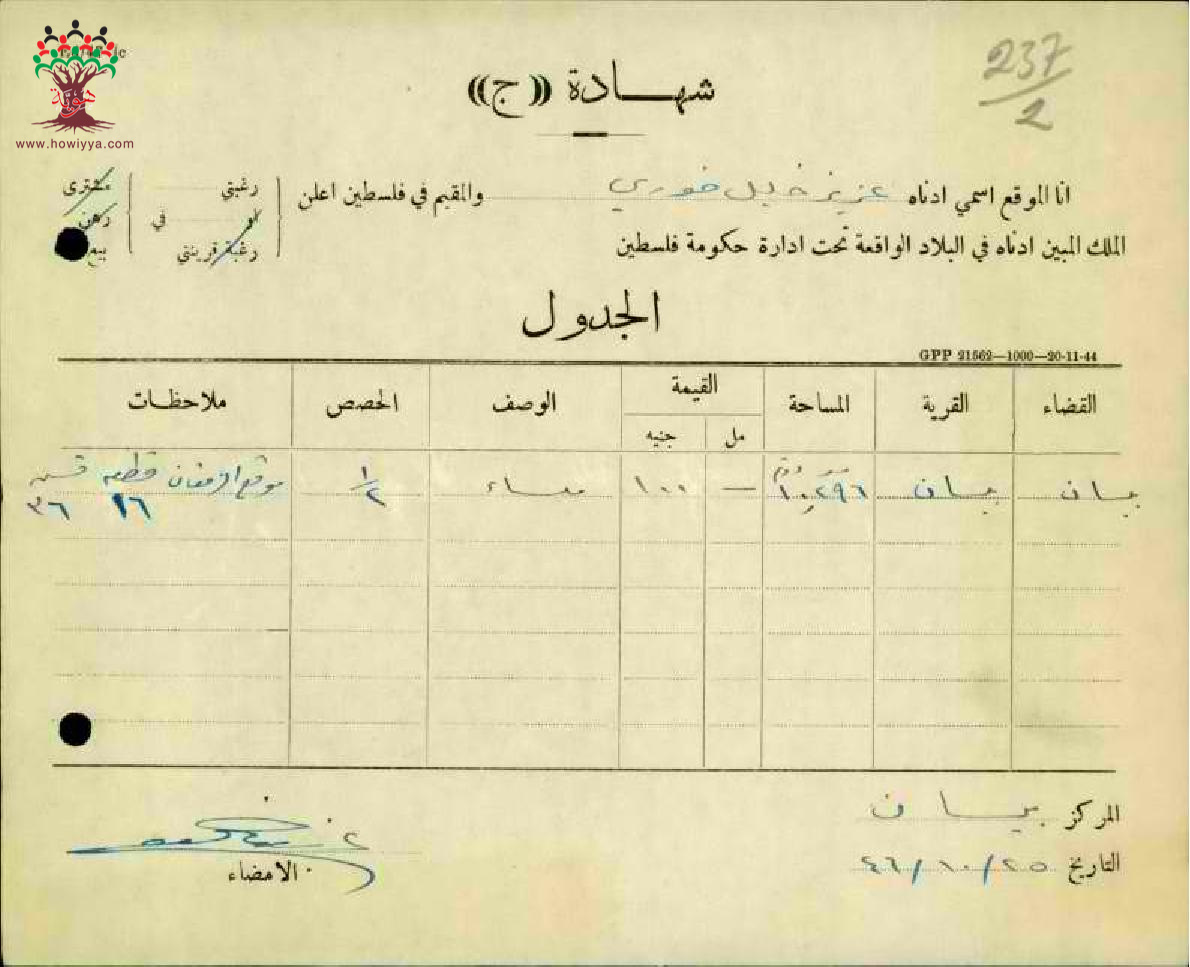 هوية
www.howiyya.com
237/2
شهادة ((ج))
انا الموقع اسمي ادناه عزيز خليل خوري والمقيم في فلسطين اعلن
رغبتي
او
رغبة قرينتي
في
مشترى
رهن
بيع
الملك المبين ادناه في البلاد الواقعة تحت ادارة حكومة فلسطين
الجدول
GPP 21562—1000—20-11-44
القضاء القرية المساحة القيمة الوصف الحصص ملاحظات
مل جنيه
بيسان بيسان ١٠,٢٩٦ — ١٠٠ ١/٢ موقع قطعه قسيمه
١٦ ٣٦
المركز بيسان
التاريخ ٢٥/١٠/٤٦
الامضاء